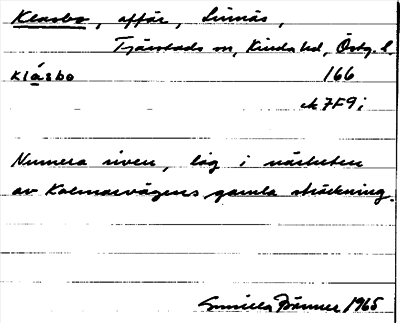 Klasbo, affär, Linnäs,
Tjärstads sn, Kinda hd, Östg. l.
klásbo 166
A 7F9;
Numera riven, låg i närheten
av Kalmarvägens gamla sträckning.
Gunilla 1965